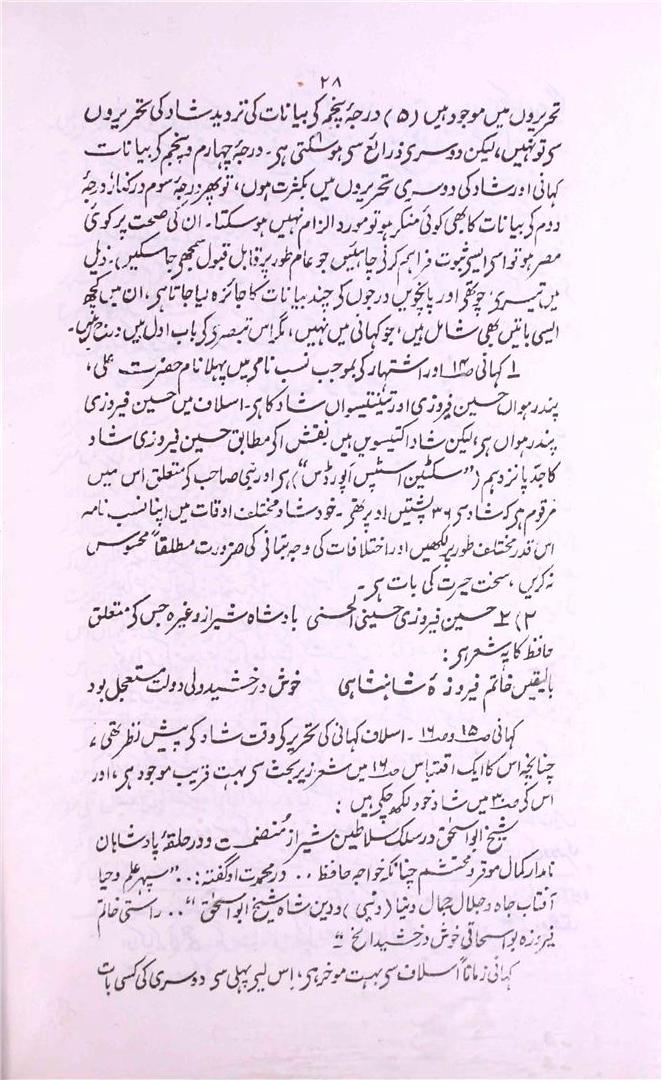 ۲۸
تحریروں میں موجود ہیں (۵) درجۂ پنجم کی بیانات کی تردید شاد کی تحریروں
سی تو نہیں، لیکن دوسری ذرائع سی ہو سکتی ہی۔ درجۂ چہارم و پنجم کی بیانات
کہانی اور شاد کی دوسری تحریروں میں بکثرت ہوں، تو پھر درجۂ سوم درکنار درجۂ
دوم کی بیانات کا بھی کوئی منکر ہو تو مورد الزام نہیں ہو سکتا۔ ان کی صحت پر کوئی
مصر ہو تو اسی ایسی ثبوت فراہم کرنی چاہئیں جو عام طور پر قابل قبول سمجھی جا سکیں۔ ذیل
میں تیسری، چوتھی اور پانچویں درجوں کی چند بیانات کا جائزہ لیا جاتا ہی، ان میں کچھ
ایسی باتیں بھی شامل ہیں، جو کہانی میں نہیں، مگر اس تبصری کی باب اول میں درج ہیں۔
۱ کہانی ص۱۴ اور اشتہار کی بموجب نسب نامی میں پہلا نام حضرت علی،
پندرہواں حسین فیروزی اور تینتیسواں شاد کا ہی۔ اسلاف میں حسین فیروزی
پندرہواں ہی، لیکن شاد اکتیسویں ہیں نقش ا کی مطابق حسین فیروزی شاد
کا جد پانزدہم ("سکٹین اسٹپس اپورڈس") ہی اور نبی صاحب کی متعلق اس میں
مرقوم ہی کہ شاد سی ۳۶ پشتیں اوپر تھی۔ خود شاد مختلف اوقات میں اپنا نسب نامہ
اس قدر مختلف طور پر لکھیں اور اختلافات کی وجہ بتانی کی ضرورت مطلقاً محسوس
نہ کریں، سخت حیرت کی بات ہی۔
۲) حسین فیروزی حسینی الحسنی بادشاہ شیراز وغیرہ جس کی متعلق
حافظ کا یہ شعر ہی:
بالیقیں خاتم فیروزۂ شاہنشاہی خوش درخشید ولی دولت مستعجل بود
کہانی ص۱۵ و ص۱۶۔ اسلاف کہانی کی تحریر کی وقت شاد کی پیش نظر تھی،
چنانچہ اس کا ایک اقتباس ص۱۶ میں شعر زیر بحث سی بہت قریب موجود ہی، اور
اس کی ص۳۰ میں شاد خود لکھ چکی ہیں:
شیخ ابو اسحٰق در سلک سلاطین شیراز منضمت و در حلقۂ پادشاہان
نامدار کمال موقر و محتشم چنانکہ خواجہ حافظ .. در مدحت او گفتہ :.. "سپہر علم و حیا
آفتاب جاہ و جلال جمال دنیا (دنیی) و دین شاہ شیخ ابو اسحٰق" .. راستی خاتم
فیروزہ بو اسحاقی خوش درخشید الخ"
کہانی زماناً اسلاف سی بہت موخر ہی، اس لیی پہلی سی دوسری کی کسی بات